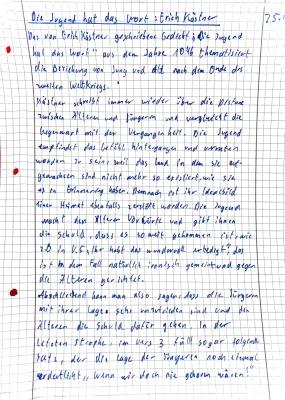 Die Jugend hat das Wort : Erich Kästner
75.
Das von Erich Kästner geschriebene Gedicht „Die Jugend
hat das Wort" aus dem Jahre 1946 thematisiert
die Beziehung von Jung und Alt nach dem Ende des
zweiten Weltkriegs.
Kästner schreibt immer wieder über die Distanz
zwischen Älteren und Jüngeren und vergleicht die
Gegenwart mit der Vergangenheit. Die Jugend
empfindet das Gefühl hintergangen und verraten
worden zu sein, weil das Land in dem sie auf-
gewachsen sind nicht mehr so existiert, wie sie
es in Erinnerung haben. Demnach ist ihr Idealbild
einer Heimat ebenfalls zerstört worden. Die Jugend
macht den Älteren Vorwürfe und gibt ihnen
die Schuld, dass es so weit gekommen ist, wie
z.B in V.5 „Ihr habt das wundervoll erledigt", das
ist in dem Fall natürlich ironisch gemeint und gegen
die Älteren gerichtet.
Abschließend kann man also sagen, dass die Jüngeren
mit ihrer Lage sehr unzufrieden sind und den
Älteren die Schuld dafür geben. In der
letzten Strophe, im Vers 3 fällt sogar folgender
Satz, der die Lage der Jüngeren noch einmal
verdeutlicht „wenn wir doch nie geboren wären!"